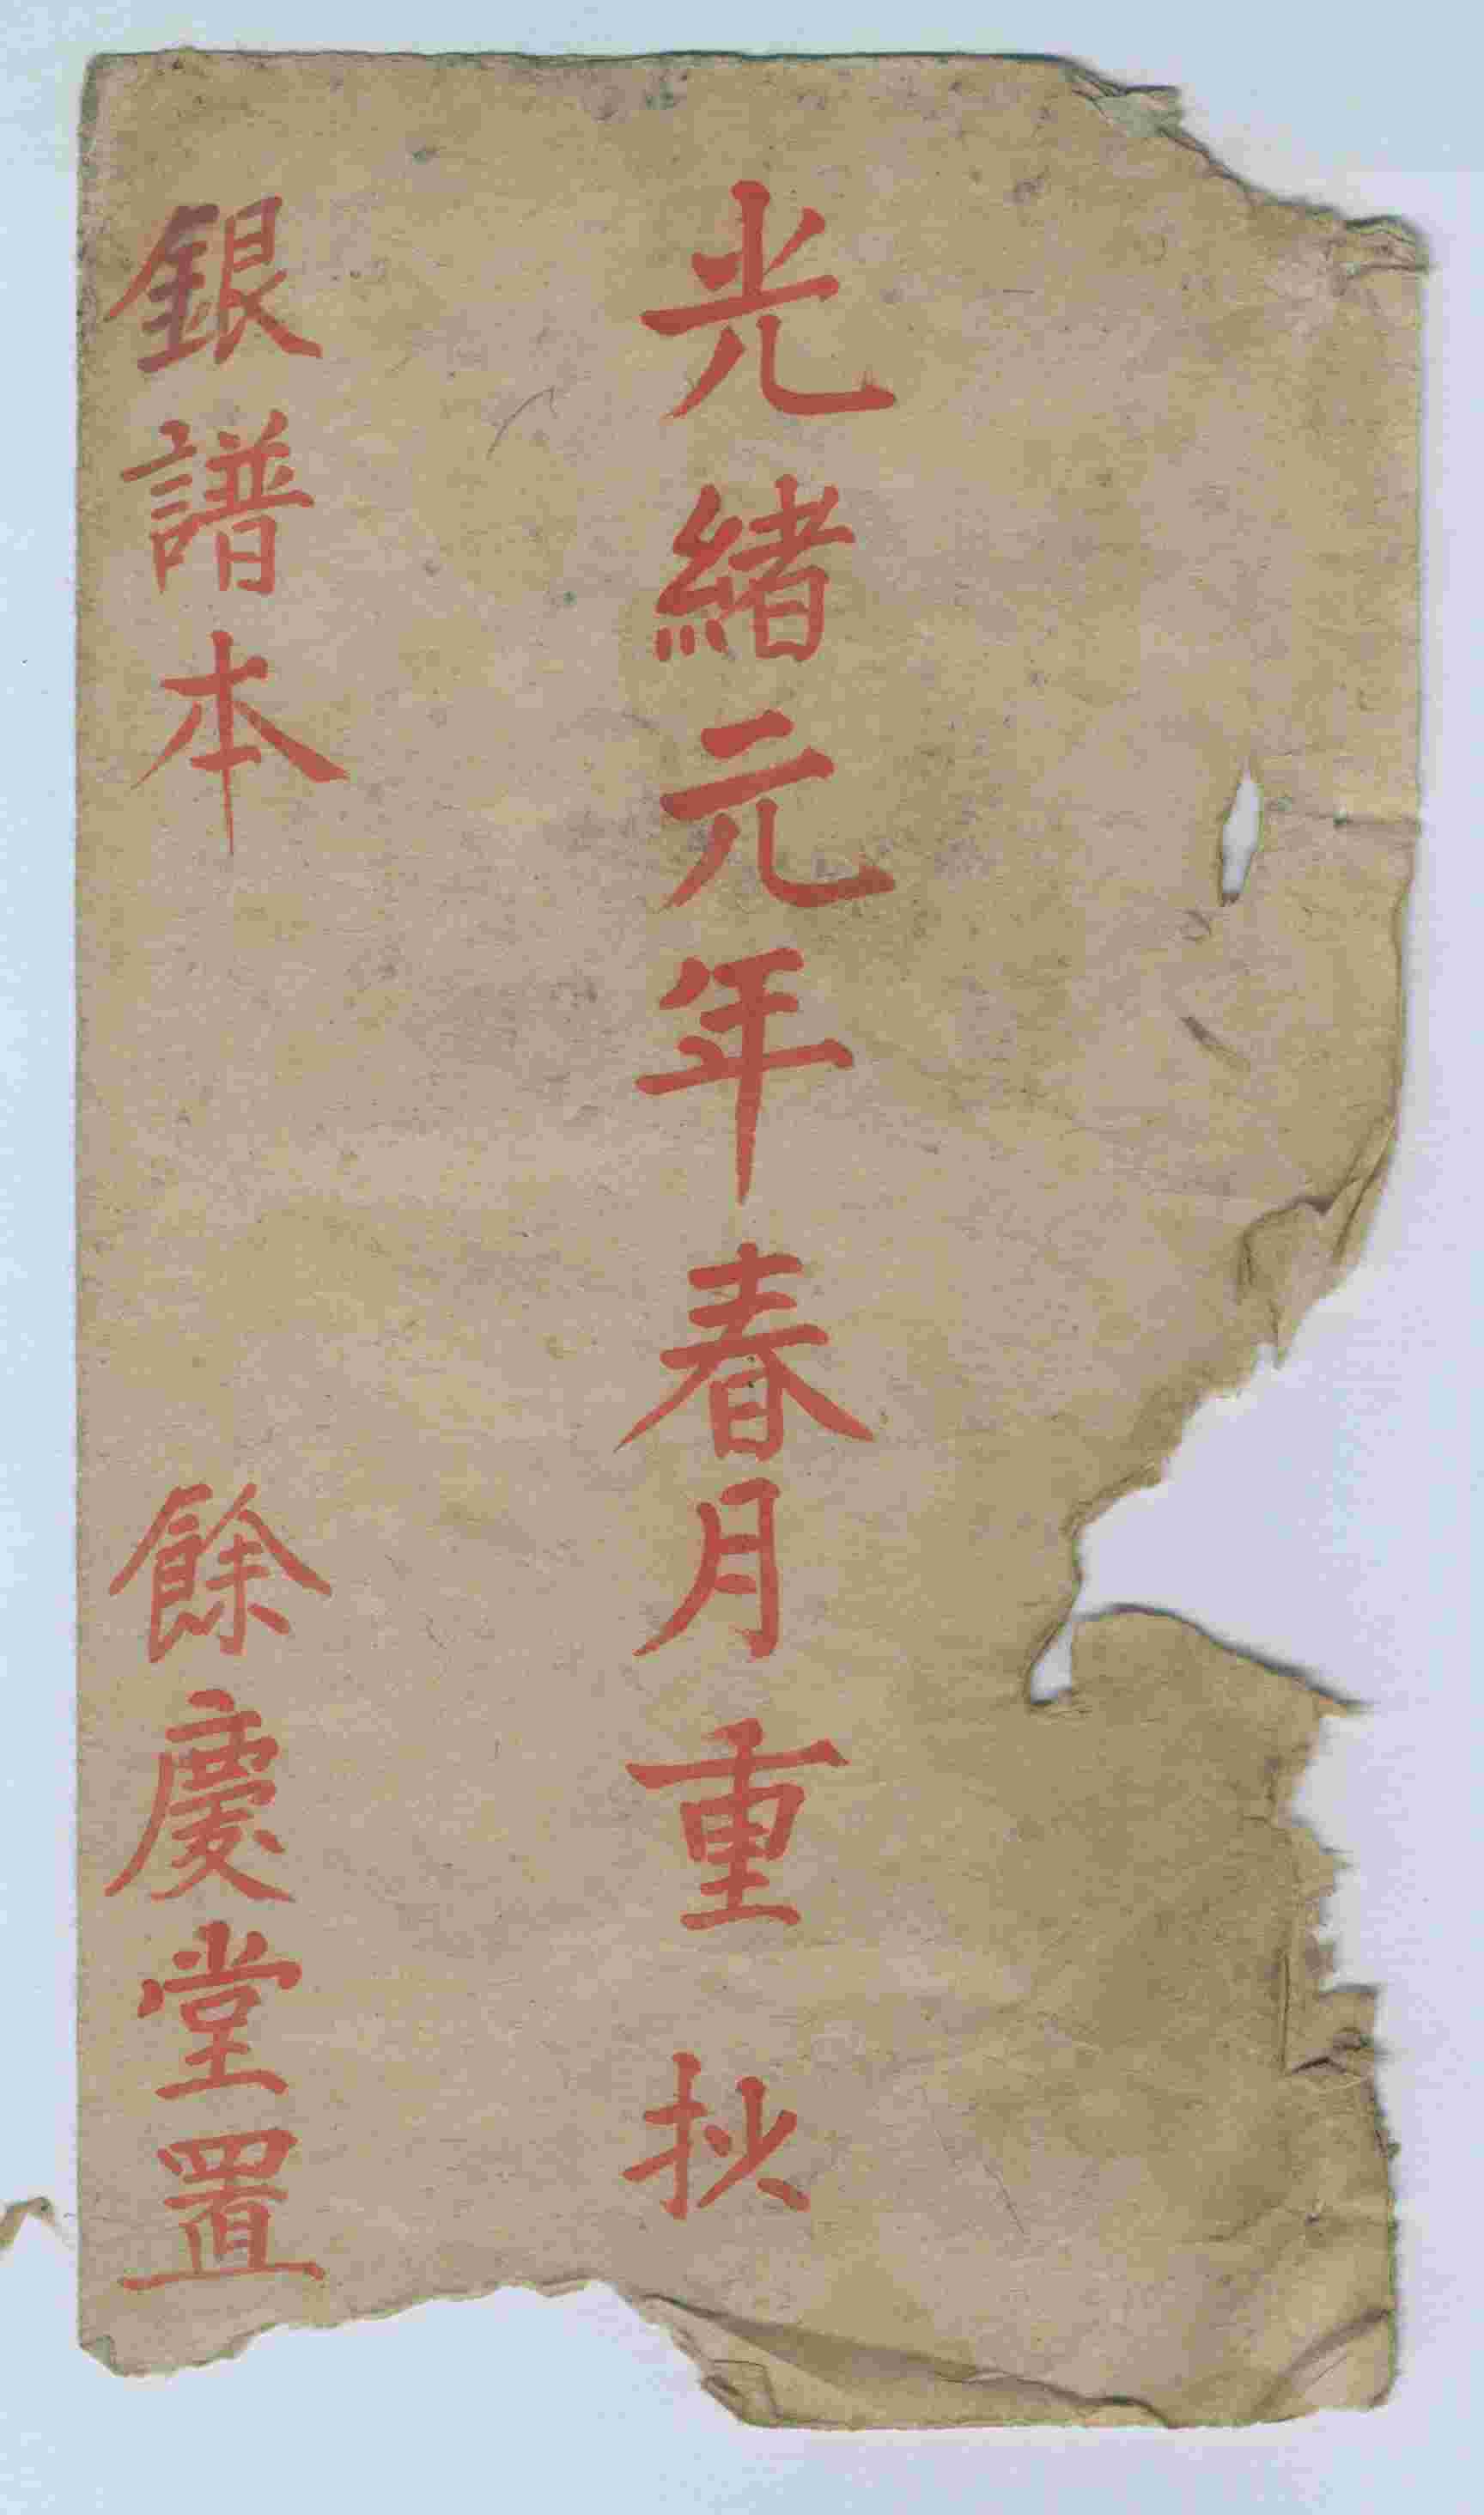 光緒元年春月重抄
銀譜本
餘慶堂置